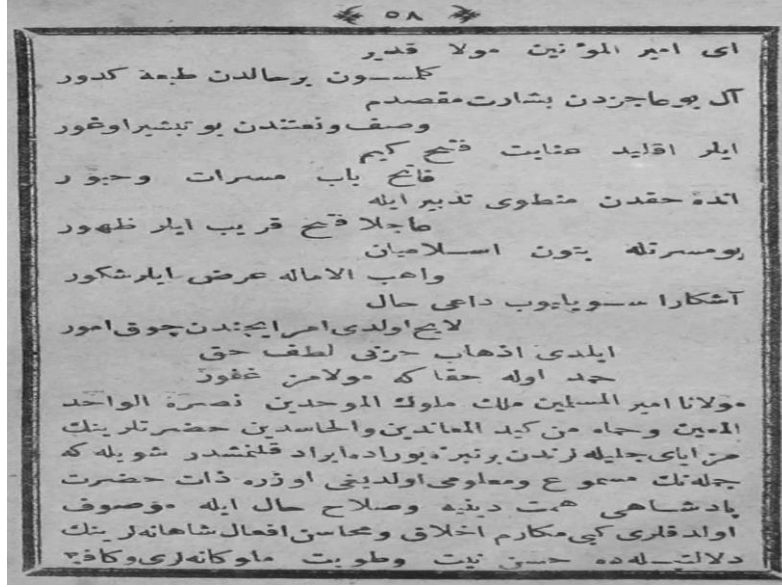 ٥٨
ای امیر المؤنین مولا قدیر
کلسون برحالدن طبعه کدور
آل بو عاجزدن بشارت مقصدم
وصف و نعتندن بو تبشیر اوغور
ایلر اقلید عنایت فتح کیم
فاتح باب مسرات وحبور
انده حقدن منطوی تدبیر ایله
عاجلا فتح قریب ایلر ظهور
بومسرتله بتون اسلامیان
واهب الاماله عرض ایلر شکور
آشکارا سویلیوب داعی حال
لایح اولدی امر ایچندن چوق امور
ایلدی اذهاب حزنی لطف حق
حمد اوله حقا که مولامز غفور
مولانا امیر المسلمین ملك ملوك الموحدین نصرة الواحد
المعین وحماه من کید المعاندین والحاسدین حضرتلرینك
مزایای جلیله لرندن برنبزه بوراده ایراد قلنمشدر شویله که
جمله نك مسموع ومعلومی اولدیغی اوزره ذات حضرت
پادشاهی همت دینیه وصلاح حال ایله موصوف
اولدقلری کبی مکارم اخلاق ومحاسن افعال شاهانه لرینك
دلالتیله ده حسن نیت وطویت ملوکانه لری وکافهٔ